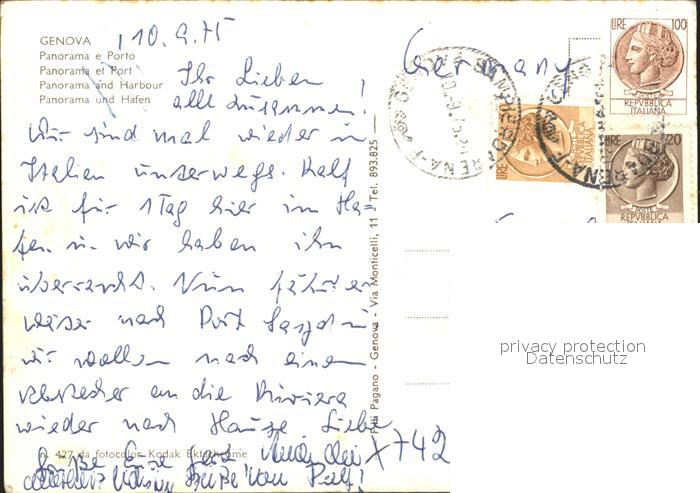 GENOVA
Panorama e Porto
Panorama et Port
Panorama and Harbour
Panorama und Hafen
10.9.75
Germany
Ihr Lieben
alle zusammen!
Wir sind mal wieder in
Italien unterwegs. Ralf
ist für 1 Tag hier im Ha=
fen u. wir haben ihn
überrascht. Nun fährt er
weiter nach Port
wir wollen nach einem
Abstecher an die Riviera
wieder nach Hause Liebe
Grüße Eure
Grüße von Ralf!
X742
N. 427 da fotocolor Kodak Ektachrome
F.lli Pagano - Genova - Via Monticelli, 11 - Tel. 893.825
LIRE 100
POSTE
REPVBBLICA
ITALIANA
LIRE
REPVBBLICA
ITALIANA
LIRE 20
POSTE
REPVBBLICA
ITALIANA
privacy protection
Datenschutz